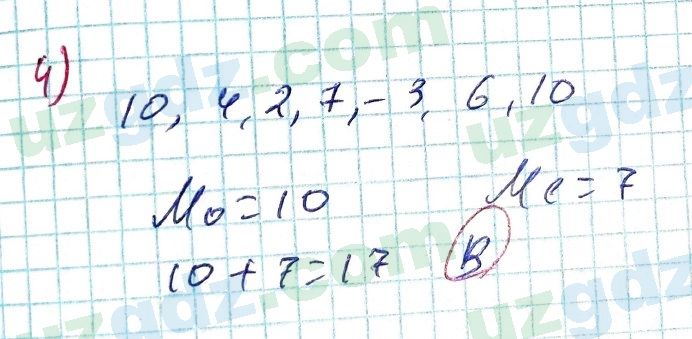 4)
10, 4, 2, 7, -3, 6, 10
Mo = 10 Me = 7
10 + 7 = 17 B
uzgdz.com